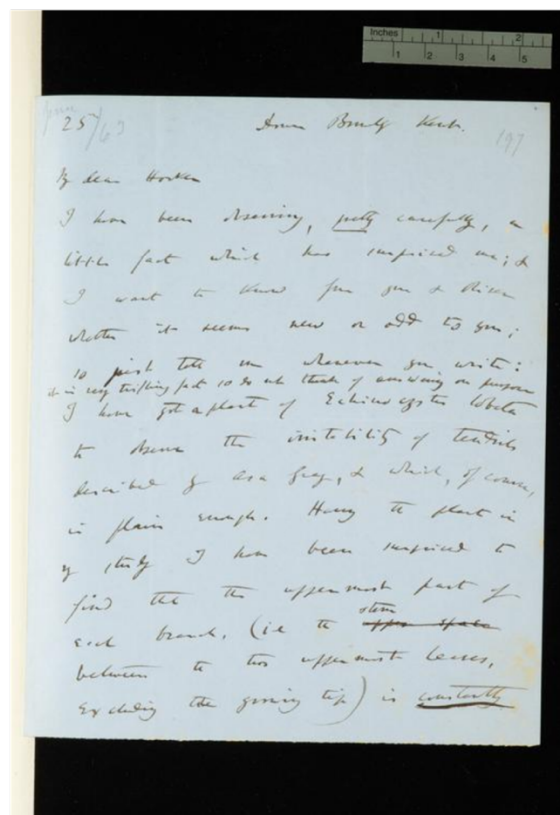 Inches 1 2
1 2 3 4 5
June
25/63
Down Bromley Kent.
197
My dear Hooker
I have been observing, pretty carefully, a
little fact which has surprised me; &
I want to know from you & Oliver
whether it seems new or odd to you;
so just tell me whenever you write:
it is very trifling fact so do not think of answering on purpose
I have got a plant of Echinocystis lobata
to observe the irritability of tendrils
described by Asa Gray, & which, of course,
is plain enough. Having the plant in
my study I have been surprised to
find that the uppermost part of
each branch, (ie the stem
between the two uppermost leaves,
excluding the growing tip) is constantly